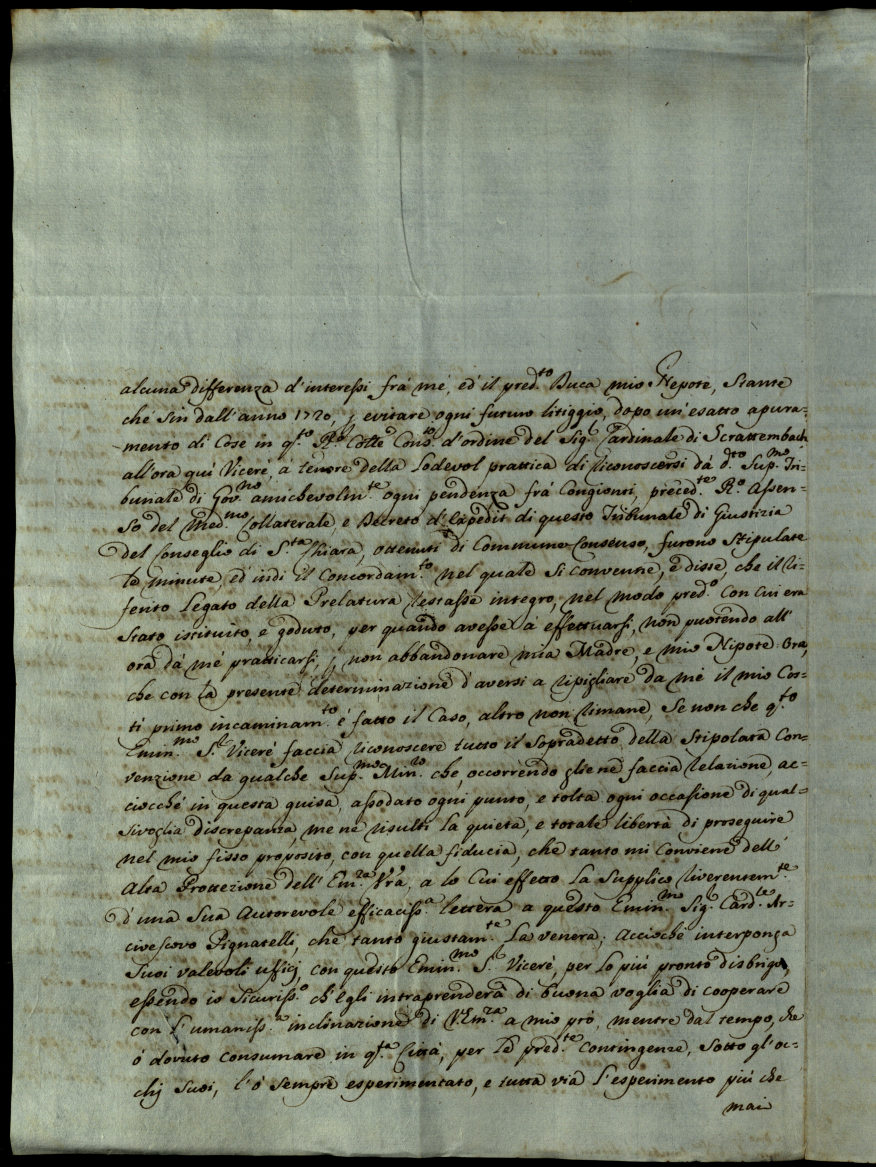 alcuna differenza d'interessi frà mé, ed' il pred.to Duca mio Nepote, Stante
ché Sin dall'anno 1720, p evitare ogni futuro litiggio, dopo un'esatto apura=
mento di Cose in q.to R.o Coll.e Cons.o d'ordine del Sig.r Cardinale di Scrattembach
all'ora quì Viceré, à tenore della Lodevol prattica di riconoscersi dà d.to Sup.mo Tri=
bunale di Gov.no amichevolm.te ogni pendenza frà Congionti, preced.te R.o Assen=
so del Med.mo Collaterale e Decreto d'Expedit di questo Tribunale di Giustizia
del Conseglio di S.ta Chiara, ottenuti di Commune Consenso, furono Stipulate
le minute, ed' indi il Concordam.to nel quale Si Convenne, e disse, che il ri=
ferito Legato della Prelatura restasse integro, nel modo pred.o con Cui era
Stato istituito, e goduto, per quando avesse à effettuarsi, non puotendo all'
ora dà mé pratticarsi, p non abbandonare mia Madre, e mio Nipote. Ora,
che con la presente determinazione d'aversi a ripigliare da mé il mio Cos=
tì primo incaminam.to é fatto il Caso, altro non rimane, Se non che q.to
Emin.mo S.r Viceré faccia riconoscere tutto il Sopradetto della Stipolata Con=
venzione da qualche Sup.mo Min.ro che, occorrendo glie né faccia relazione, ac=
ciocché in questa guisa, assodato ogni punto, e tolta ogni occasione di qual=
sivoglia discrepanza, me né risulti la quieta, e totale libertà di proseguire
nel mio fisso proposito, con quella fiducia, che tanto mi Conviene dell'
Alta Protezione dell' Em.za V'ra, a lo Cui effetto La Supplico riverentem.te
d'una Sua Autorevole efficaciss.a lettera a questo Emin.mo Sig.r Card.le Ar=
civescovo Pignatelli, che tanto giustam.te La venera, Acciochè interponga
Suoi valevoli uffizj con questo Emin.mo S.r Viceré, per lo più pronto disbrigo,
essendo io Sicuriss.o ch'egli intraprenderà di buona voglia di cooperare
con l'umaniss.a inclinazione di V.Em.za a mio prò, mentre dal tempo, che
ò dovuto consumare in q.ta Città, per le pred.te contingenze, Sotto gl'oc=
chj Suoi, l'ò Sempre esperimentato, e tutta via l'esperimento più che
mai